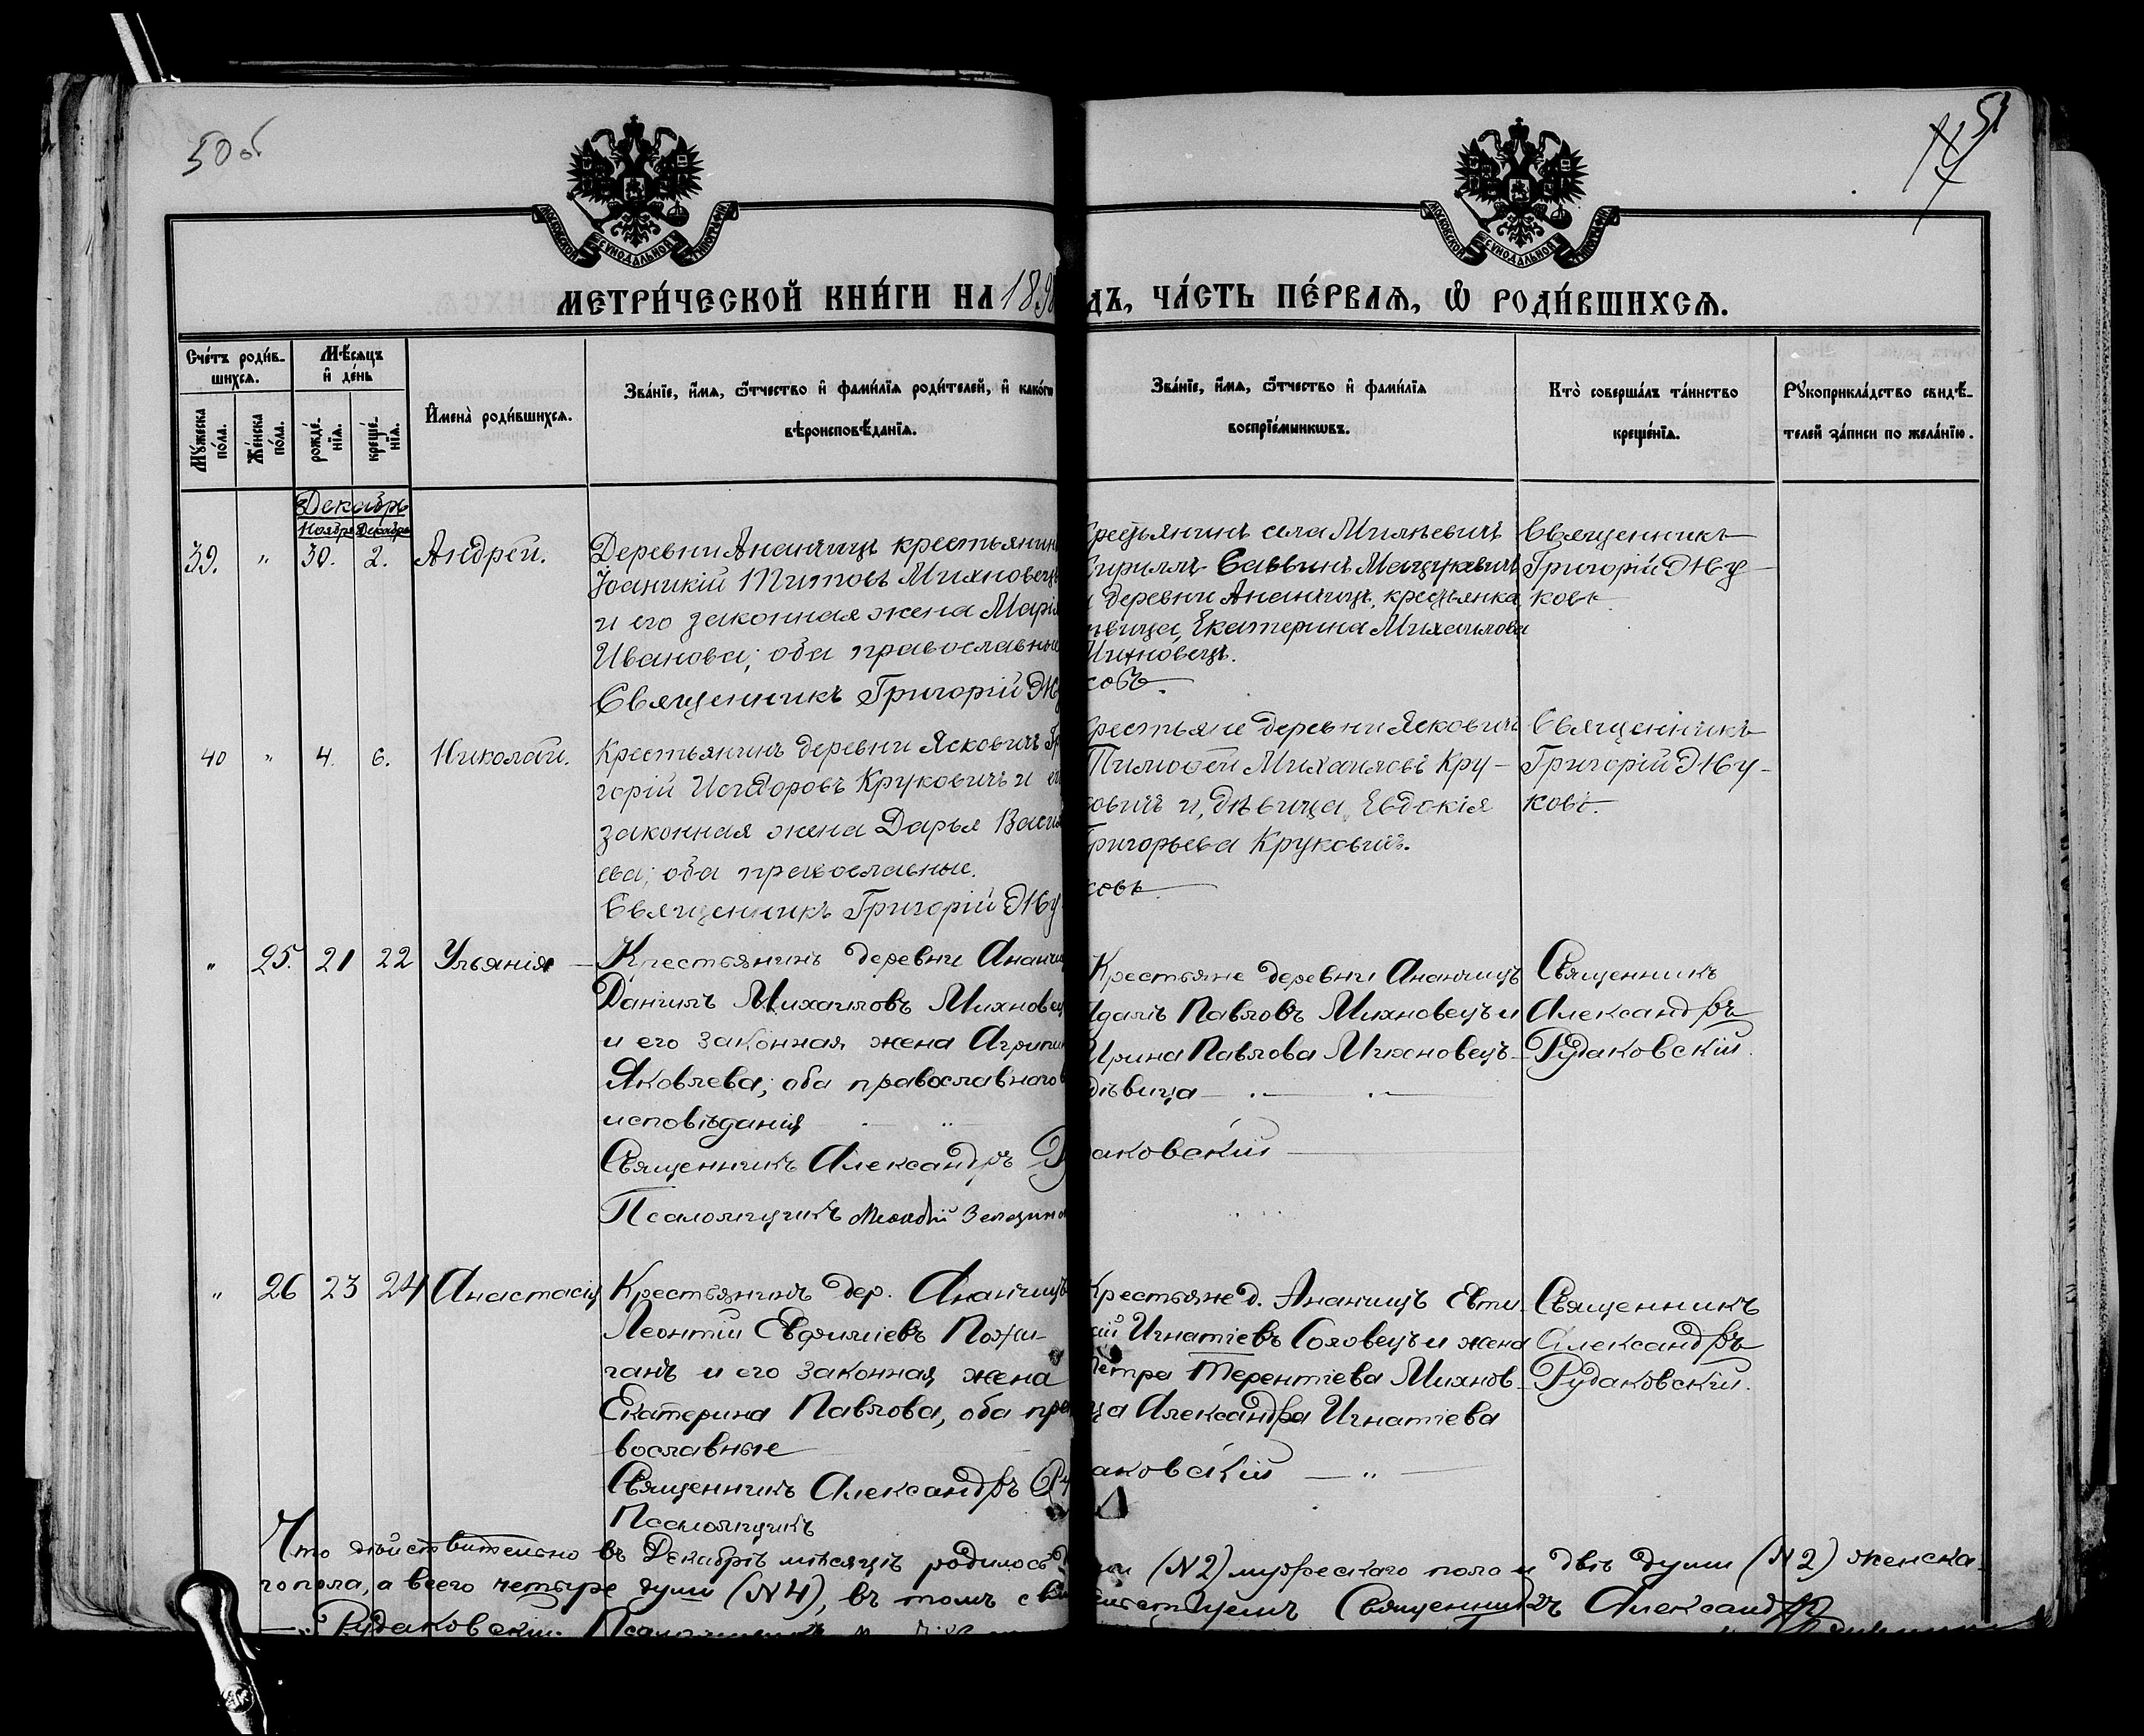 50 об
51
МОСКОВСКОЙ СУНОДАЛЬНОЙ ТИПОГРАФІИ
МОСКОВСКОЙ СУНОДАЛЬНОЙ ТИПОГРАФІИ
МЕТРИ́ЧЕСКОЙ КНИ́ГИ НА 189
ДЪ, ЧА́СТЬ ПЕ́РВАѦ, Ѡ҆ РОДИ́ВШИХСѦ.
Сче́тъ роди́в-
шихсѧ.
Мѣ́сѧцъ
и҆ де́нь
Мꙋ́жеска по́ла.
Же́нска по́ла.
рожде́нїѧ.
креще́нїѧ.
И҆мена̀ роди́вшихсѧ.
Зва́нїе, и҆́мѧ, ѻ҆́тчество и҆ фами́лїѧ роди́телей, и҆ како́гѡ
вѣроисповѣ́данїѧ.
Зва́нїе, и҆́мѧ, ѻ҆́тчество и҆ фами́лїѧ
воспрїе́мникѡвъ.
Кто̀ соверша́лъ та́инство
креще́нїѧ.
Рꙋкоприкла́дство свидѣ́-
телей за́писи по жела́нїю.
Декабрь
Ноябрь Декабрь
39. " 30. 2. Андрей.
Деревни Ананчицъ крестьянин
Іоаникій Титовъ Михновецъ
и его законная жена Марія
Иванова; оба православные
Священникъ Григорій Жу
рестьянинъ села Милевичъ
Кириллъ Саввинъ Мацукевичъ
и деревни Ананчицъ, крестьянка
ѣвица, Екатерина Михаилова
Михновецъ.
ковъ.
Священникъ
Григорій Жу-
ковъ.
40 " 4. 6. Николай.
Крестьянинъ деревни Ясковичъ Гр
горій Исидоровъ Круковичъ и ег
законная жена Дарья Васил
ева; оба православные.
Священникъ Григорій Жу
рестьяне деревни Ясковичъ
Тимофей Михаиловъ Кру-
ковичъ и, дѣвица, Евдокія
Григорьева Круковичъ.
ковъ.
Священникъ
Григорій Жу-
ковъ.
" 25. 21 22 Ульянія
Крестьянинъ деревни Ананчи
Даніилъ Михаиловъ Михновец
и его законная жена Агрипи
Яковлева; оба православнаго в
исповѣданія
Священникъ Александръ Р
Псаломщикъ
Крестьяне деревни Ананчицъ
Павловъ Михновецъ и
Ирина Павлова Михновецъ
дѣвица
аковскій
Священникъ
Александръ
Рудаковскій.
" 26 23 24 Анастасія
Крестьянинъ дер. Ананчицъ
Леонтій Евфиміевъ
и его законная жена
Екатерина Павлова, оба пра
вославные
Священникъ Александръ Ру
Псаломщикъ
Крестьяне д. Ананчицъ Евти
хій Игнатіевъ Соловецъ и жена
Петра Терентіева Михнов-
ца Александра Игнатіева
аковскій
Священникъ
Александръ
Рудаковскій.
Что дѣйствительно въ Декабрѣ мѣсяцѣ родилось
ши (№2) мужескаго пола и двѣ души (№2) женска-
го пола, а всего четыре души (№4), въ томъ сви
дѣтельствуемъ Священникъ Александръ
Рудаковскій. Псаломщикъ